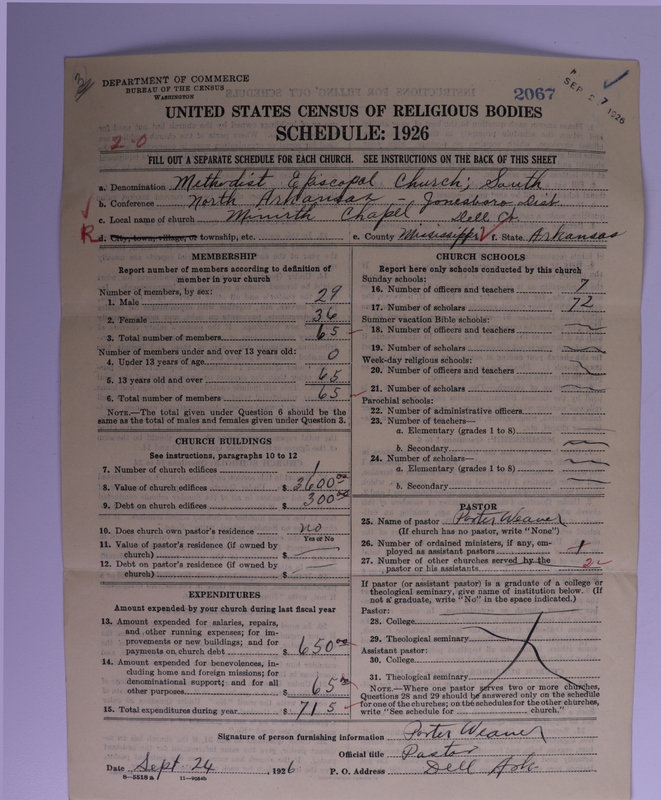 DEPARTMENT OF COMMERCE
BUREAU OF THE CENSUS
WASHINGTON
2067
SEP 27 1926
UNITED STATES CENSUS OF RELIGIOUS BODIES
SCHEDULE: 1926
20
FILL OUT A SEPARATE SCHEDULE FOR EACH CHURCH. SEE INSTRUCTIONS ON THE BACK OF THIS SHEET
a. Denomination Methodist Episcopal Church, South
b. Conference North Arkansas - Jonesboro Dist.
c. Local name of church Chapel Dell
R d. City, town, village, or township, etc. e. County Mississippi f. State Arkansas
MEMBERSHIP
Report number of members according to definition of
member in your church
Number of members, by sex:
1. Male 29
2. Female 36
3. Total number of members 65
Number of members under and over 13 years old:
4. Under 13 years of age 0
5. 13 years old and over 65
6. Total number of members 65
NOTE.—The total given under Question 6 should be the
same as the total of males and females given under Question 3.
CHURCH BUILDINGS
See instructions, paragraphs 10 to 12
7. Number of church edifices 1
8. Value of church edifices $ 3600.00
9. Debt on church edifices $ 300.00
10. Does church own pastor's residence no
Yes or No
11. Value of pastor's residence (if owned by
church) $
12. Debt on pastor's residence (if owned by
church) $
EXPENDITURES
Amount expended by your church during last fiscal year
13. Amount expended for salaries, repairs,
and other running expenses; for im-
provements or new buildings; and for
payments on church debt $ 650.00
14. Amount expended for benevolences, in-
cluding home and foreign missions; for
denominational support; and for all
other purposes $ 65.00
15. Total expenditures during year $ 715
CHURCH SCHOOLS
Report here only schools conducted by this church
Sunday schools:
16. Number of officers and teachers 7
17. Number of scholars 72
Summer vacation Bible schools:
18. Number of officers and teachers
19. Number of scholars
Week-day religious schools:
20. Number of officers and teachers
21. Number of scholars
Parochial schools:
22. Number of administrative officers
23. Number of teachers—
a. Elementary (grades 1 to 8)
b. Secondary
24. Number of scholars—
a. Elementary (grades 1 to 8)
b. Secondary
PASTOR
25. Name of pastor Porter Weaver
(If church has no pastor, write "None")
26. Number of ordained ministers, if any, em-
ployed as assistant pastors 1
27. Number of other churches served by the
pastor or his assistants 2
If pastor (or assistant pastor) is a graduate of a college or
theological seminary, give name of institution below. (If
not a graduate, write "No" in the space indicated.)
Pastor:
28. College
29. Theological seminary
Assistant pastor:
30. College
31. Theological seminary
NOTE.—Where one pastor serves two or more churches,
Questions 28 and 29 should be answered only on the schedule
for one of the churches; on the schedules for the other churches,
write "See schedule for church."
Signature of person furnishing information Porter Weaver
Official title Pastor
Date Sept. 24, 1926 P. O. Address Dell Ark
8-5518a 11-9024b